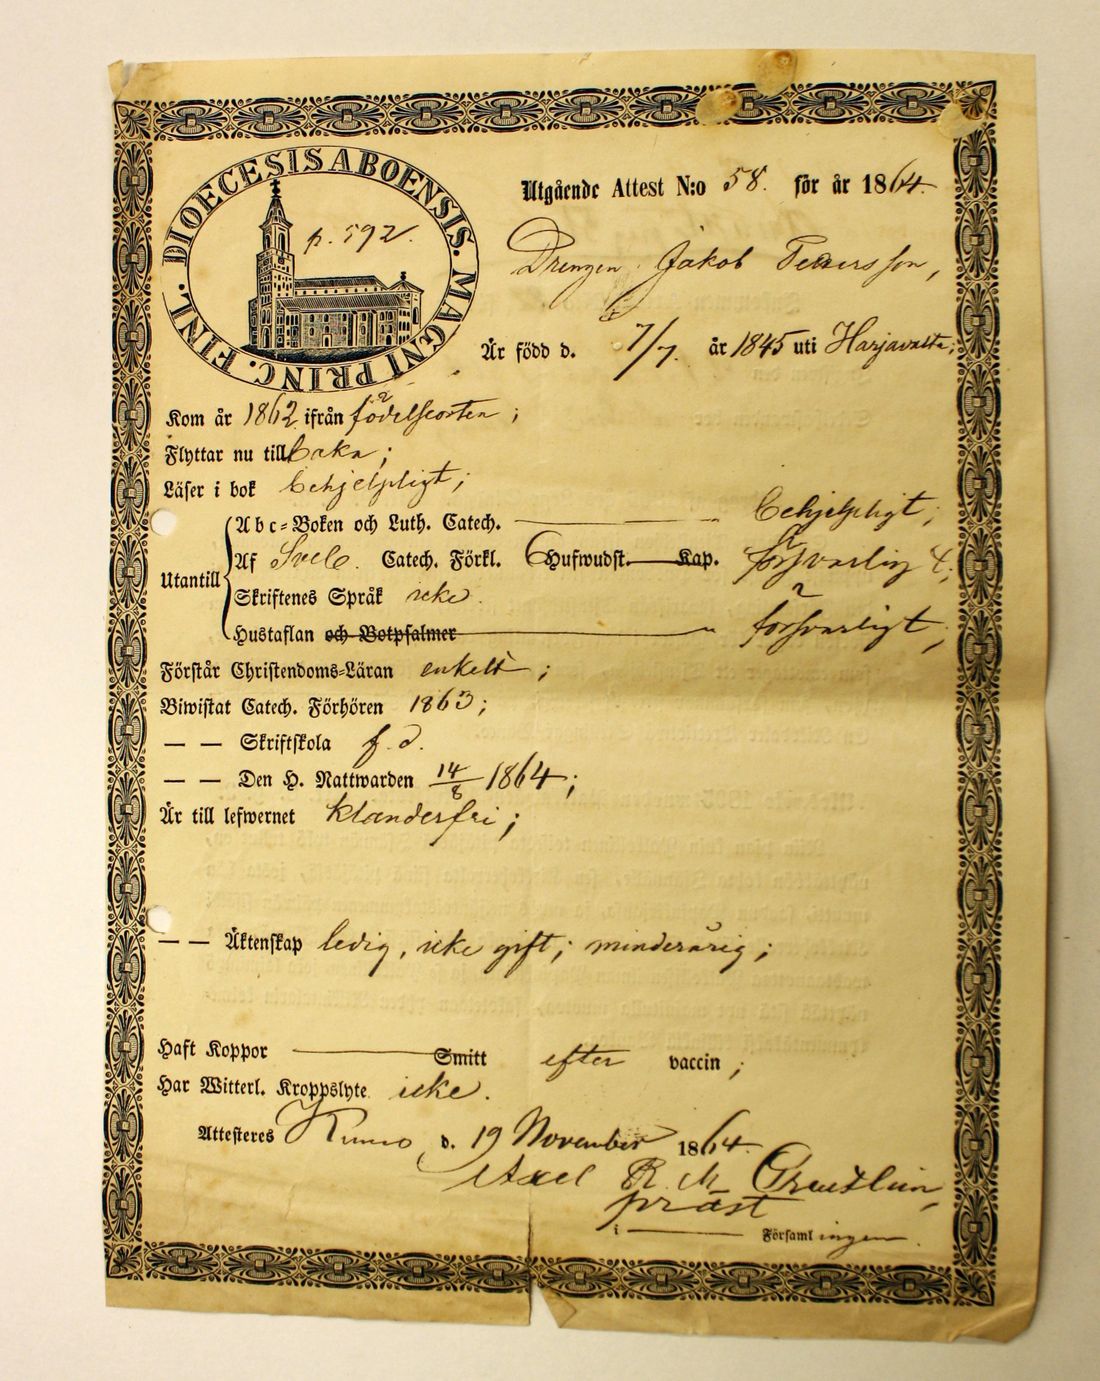 DIOECESIS ABOENSIS. MAGNI PRINC. FINL.
p. 592.
Utgående Attest N:o 58. för år 1864.
Drengen Jakob
Är född d. 7/7. år 1845 uti Harjavalta;
Kom år 1862 ifrån födelseorten;
Flyttar nu tillbaka;
Läser i bok behjelpligt;
Utantill
Abc=Boken och Luth. Catech. behjelpligt;
Af Sveb. Catech. Förkl. 6 Hufwudst. Kap. försvarlig
Skriftenes Språk icke.
Hustaflan och Botpsalmer försvarligt;
Förstår Christendoms=Läran enkelt;
Biwistat Catech. Förhören 1863;
— — Skriftskola f. d.
— — Den H. Nattwarden 14/8 1864;
Är till lefwernet klanderfri;
— — Äktenskap ledig, icke gift; minderårig;
Haft Koppor Smitt efter vaccin;
Har Witterl. Kroppslyte icke.
Attesteres Kumo d. 19 November 1864.
Axel R. M.
präst
i Församlingen.